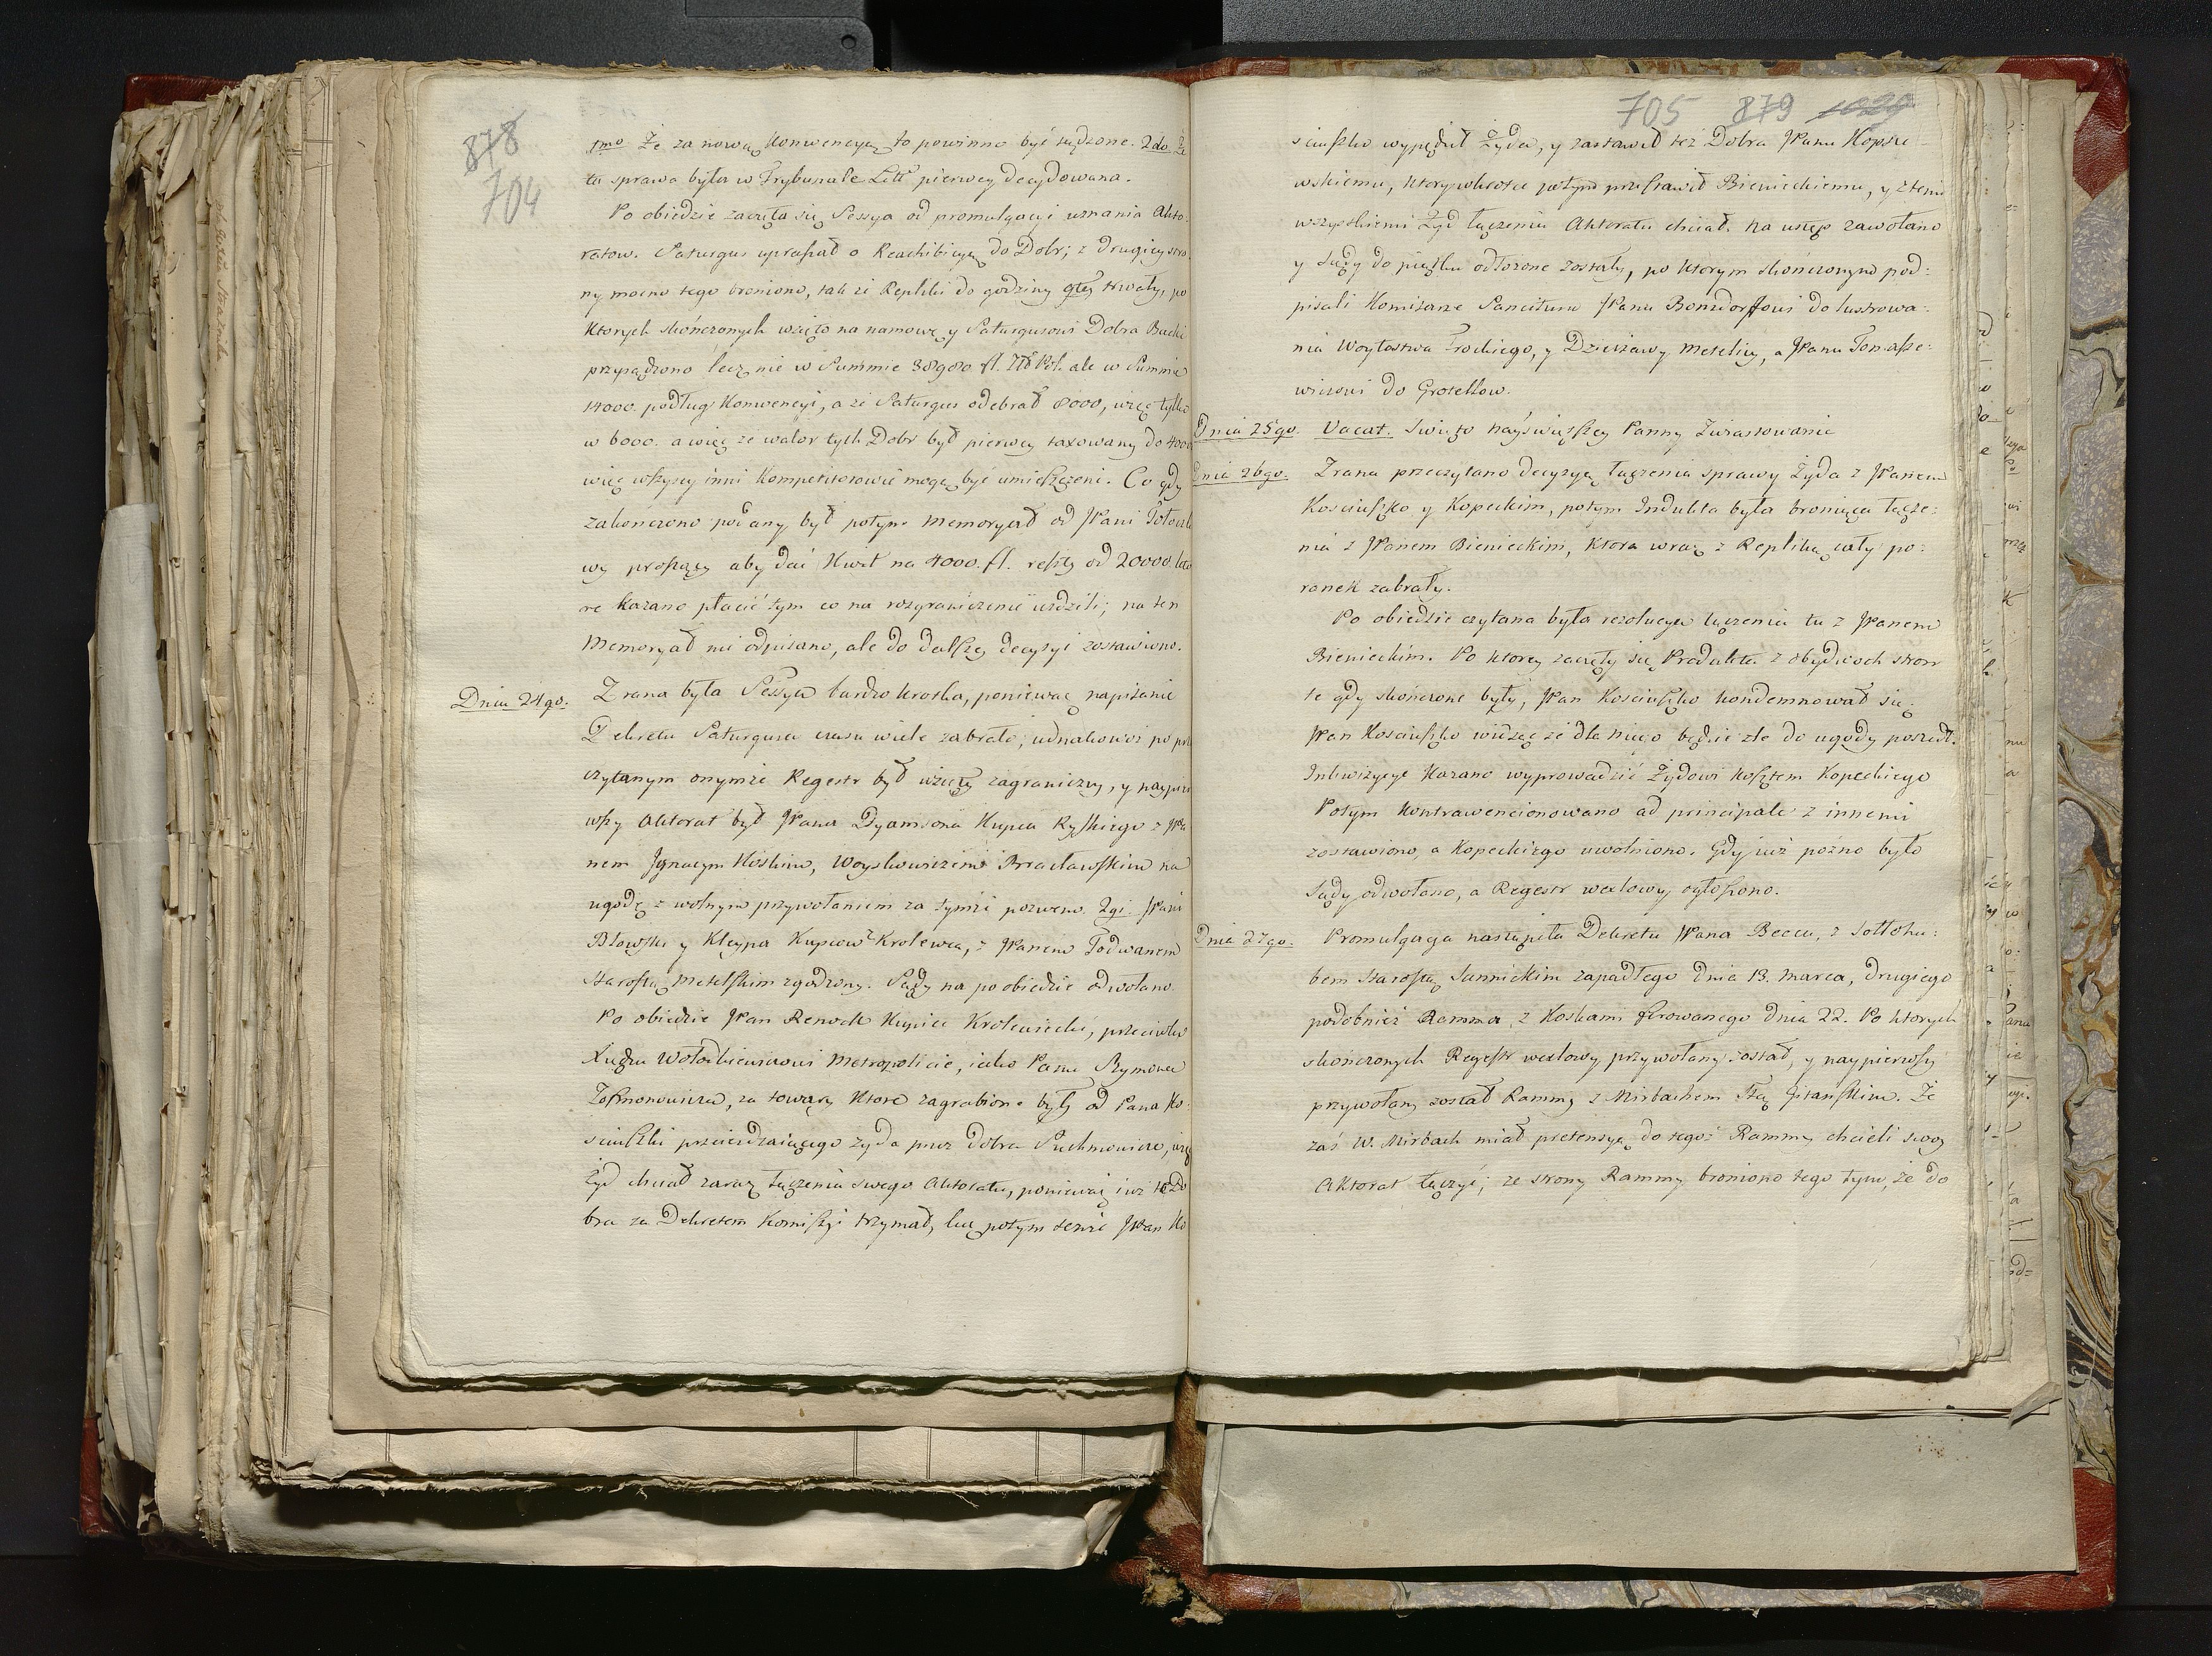 878
704
1mo Że za nową Konwencyą to powinno być sądzone. 2do Że
ta sprawa była w Trybunale Litt pierwey decydowana.
Po obiedzie zaczęła się Sessya od promulgacyi uznania Akto:
ratow. Saturgus upraszał o Reachibicyą do Dobr; z drugiey stro:
ny mocno tego broniono, tak że Repliki do godziny 9tey trwały, po
Ktorych skończonych wzięto na namowę y Saturgusowi Dobra Bucki
przysądzono lecz nie w Summie 38980 fl. Pol. ale w Summie
14000 podług Konwencyi, a że Saturgus odebrał 8000, więc tylko
w 6000. a więc że walor tych Dobr był pierwey taxowany do 4000
więc wszyscy inni Kompetitorowie mogą być umieszczeni. Co gdy
zakonczono podany był potym Memoryał od JPani
wy proszący aby dać Kwit na 4000. fl. reszty od 20000 kto
re kazano płacić tym co na rozgraniczenie iezdzili; na ten
Memoryał nie odpisano, ale do dalszey decyzyi zostawiono.
Dnia 24go. Zrana była Sessya bardzo krotka, ponieważ napisanie
Dekretu Saturgusa czasu wiele zabrało; iednakowoż po prze
czytanym onymże Regestr był wzięty zagraniczny, y naypier
wszy Aktorat był JPana Dyamsona Kupca Ryskiego z JPa
nem Jgnacym Koskim, Woyskowiczem Bracławskim na
ugodę z wolnym przywołaniem za tymże pozwem. 2gi. JPani
Blowski y Kleypa Kupcow z Krolewca, z JPanem Todwanem
Starostą Metelskim zgodzony. Sądy na po obiedzie odwołano.
Po obiedzie JPan Renock Kupiec Krolewiecki, przeciwko
Xiędzu Wołodkiewiczowi Metropolicie, iako Panu Szymona
Zośmonowicza, za towary Ktore zagrabione były od Pana Ko:
sciuszki przeieżdzaiącego żyda przez Dobra Suchmonicze, więc
żyd chciał zaraz łączenia swego Aktoratu, ponieważ iuż te Do
bra za Dekretem Komissyi trzymał, lecz potym tenże JPan Ko
705 879 1029
sciuszko wypędził Żyda, y zastawił też Dobra JPanu Kopsze
wskiemu, ktory potym przestawił Bienieckiemu, y z temi
wszystkiemi Żyd łączenia Aktoratu chciał. Na ustęp zawołano
y Sądy do piątku odłożone zostały, po Ktorym skończonym pod:
pisali Komisarze Sancitum JPanu Bonsdorffowi do lustrowa:
nia Woytostwa Trockiego, y Dzierżawy Metelicy, a JPanu Tomasze:
wiczowi do Grosellow.
Dnia 25go. Vacat. Swięto nayświętszey Panny Zwiastowanie
Dnia 26go. Zrana przeczytano decyzyą łączenia sprawy Żyda z JPanem
Kosciuszko y Kopeckim, potym Indukta była broniąca łącze:
nia z JPanem Bienieckim, Ktora wraz z Repliką cały po:
ranek zabrały.
Po obiedzie czytana była rezolucya łączenia tu z JPanem
Bienieckim. Po ktorey zaczęły się Produkta z obydwoch stron
te gdy skończone były, JPan Kosciuszko kondemnował się.
JPan Kosciuszko widząc że dla niego będzie zle do ugody poszedł.
Inkwizycye Kazano wyprowadzić Żydowi Kosztem Kopeckiego
Potym Kontrawencionowano ad principale z innemi
zostawiono, a Kopeckiego uwolniono. Gdy iuż pozno było
Sądy odwołano, a Regestr wexlowy ogłoszono.
Dnia 27go. Promulgacya nastąpiła Dekretu JPana Beccu, z Sołłohu:
bem Starostą Sannickim zapadłego Dnia 13. Marca, drugiego
podobnież Ramma, z Koskami ferowanego Dnia 22. Po ktorych
skończonych Regestr wexlowy przywołany został, y naypierwszy
przywołany został Rammy z Mirbachem Sttą Pitanskim. Że
zaś W. Mirbach miał pretensyą do tegoż Rammy chcieli swoy
Aktorat łączyć; ze strony Rammy broniono tego tym, że do